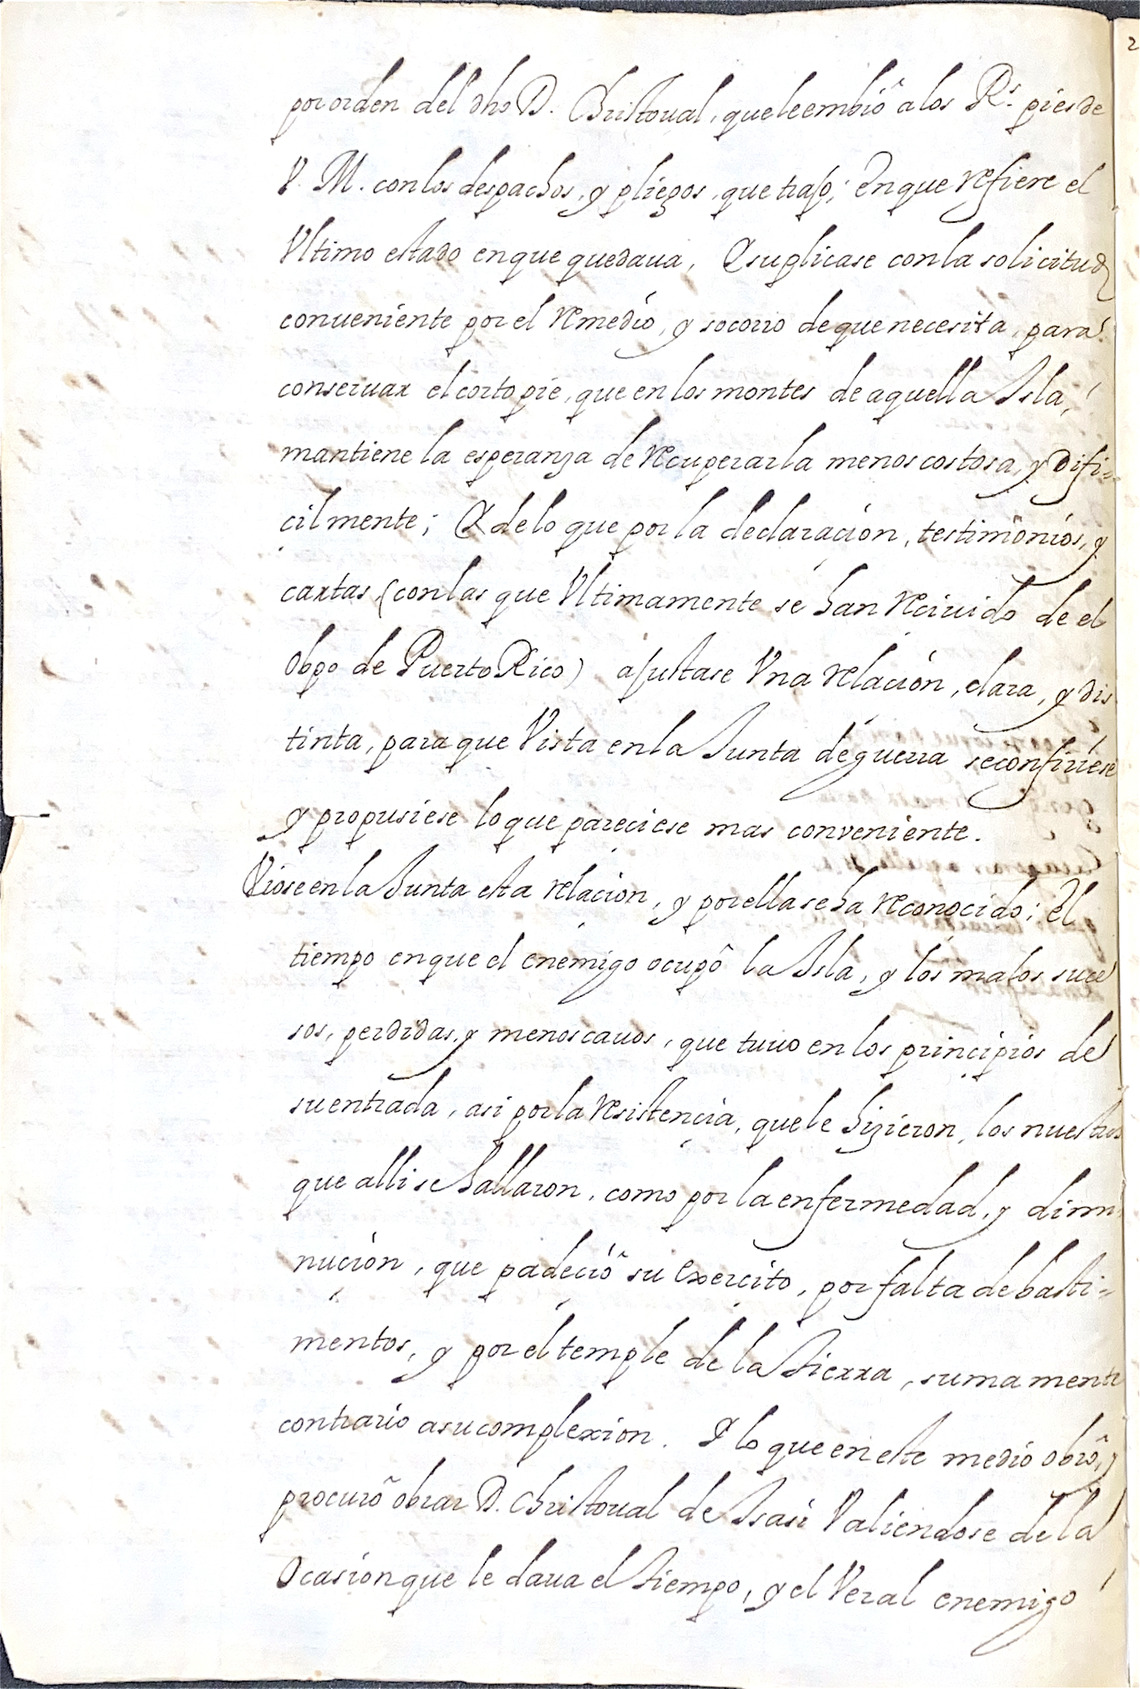 por orden del dho D. Christoual, que le embiô a los Rs. pies de
V. M. con los despachos, y pliegos, que trajo; En que refiere el
Vltimo estado en que quedaua, Y suplicase con la solicitud
conueniente por el remedio, y socorro de que necesita, para
conseruar el corto pie, que en los montes de aquella Isla,
mantiene la esperanza de recuperarla menos costosa, y difi-
cilmente; Y de lo que por la declaración, testimonios, y
cartas, (con las que Vltimamente se han reciuido de el
Obpo de Puerto Rico) ajustase Vna relación, clara, y dis
tinta, para que Vista en la Junta de guerra se confiriese
y propusiese lo que pareciese mas conveniente.
Viose en la Junta esta relacion, y por ella se ha reconocido; El
tiempo en que el enemigo ocupô la Isla, y los malos suce
sos, perdidas, y menoscauos, que tuuo en los principios de
su entrada, asi por la resistencia, que le hizieron, los nuestros
que alli se hallaron, como por la enfermedad, y dimi
nución, que padeciô su exercito, por falta de basti-
mentos, y por el temple de la tierra, sumamente
contrario a su complexion. Y lo que en este medio obrô, y
procurô obrar D. Christoual de Isasi Valiendose de la
Ocasion que le daua el tiempo, y el Ver al enemigo
2